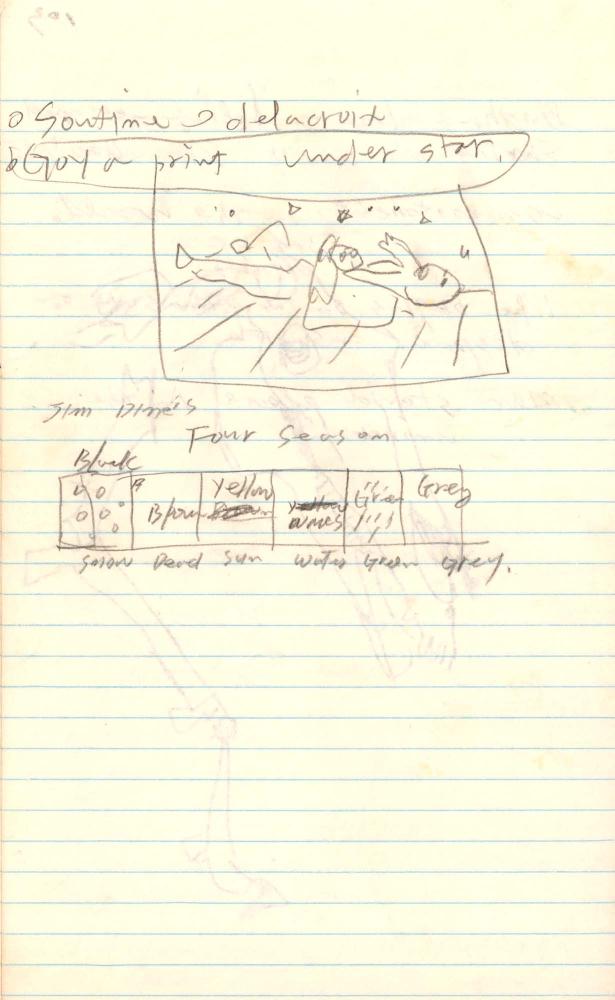 o Soutime delacroix
o Goya print under star.
Jim Dine's
Four Season
Black
Brown Yellow Green Grey
Snow Dead Sun Water Green Grey.